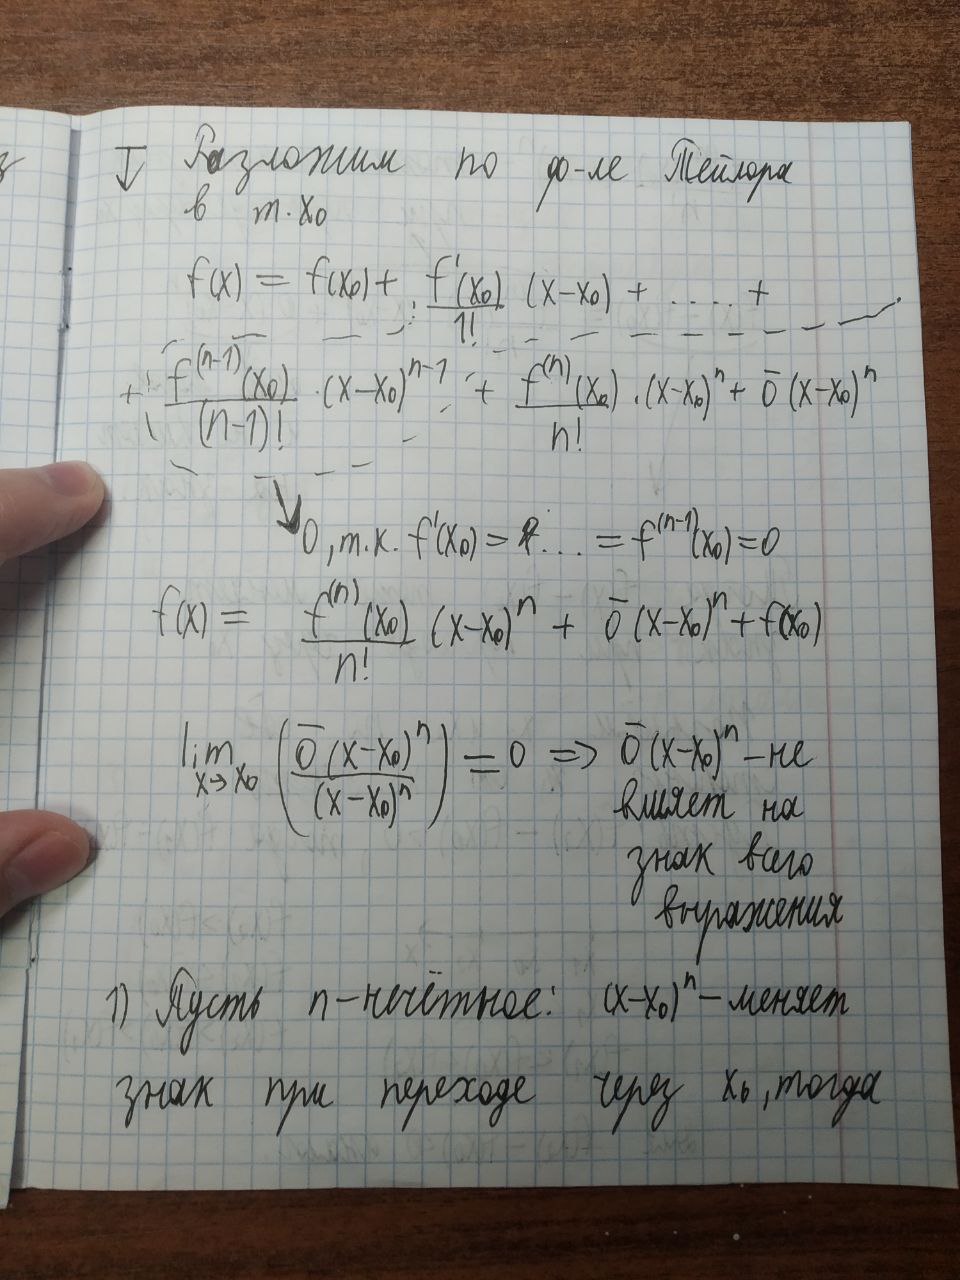 з
∇ Разложим по ф-ле Тейлора
в т. x₀
f(x) = f(x₀) + f'(x₀)/1! (x-x₀) + ..... +
+ f⁽ⁿ⁻¹⁾(x₀)/(n-1)! · (x-x₀)ⁿ⁻¹ + f⁽ⁿ⁾(x₀)/n! · (x-x₀)ⁿ + ō(x-x₀)ⁿ
0, т.к. f'(x₀) = ... = f⁽ⁿ⁻¹⁾(x₀) = 0
f(x) = f⁽ⁿ⁾(x₀)/n! (x-x₀)ⁿ + ō(x-x₀)ⁿ + f(x₀)
lim x→x₀ (ō(x-x₀)ⁿ/(x-x₀)ⁿ) = 0 => ō(x-x₀)ⁿ - не
влияет на
знак всего
выражения
1) Пусть n - нечётное: (x-x₀)ⁿ - меняет
знак при переходе через x₀, тогда